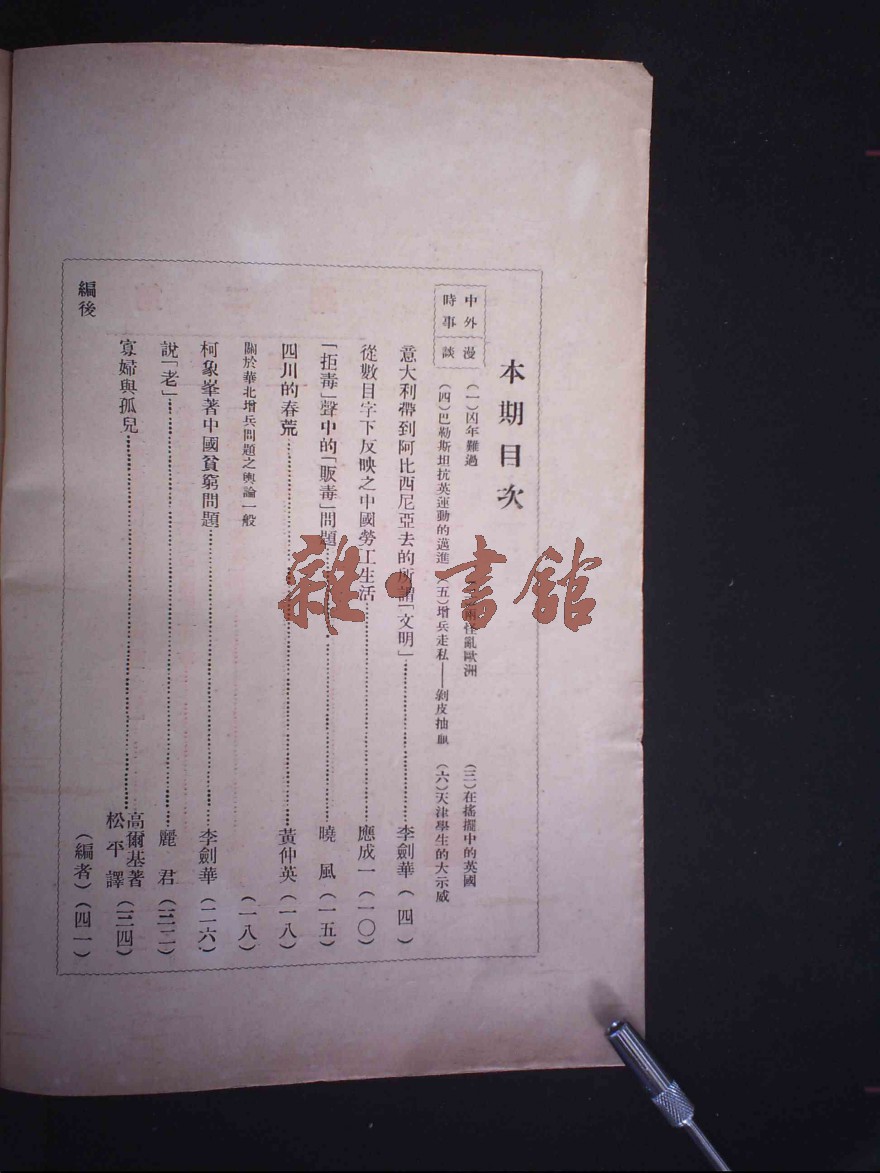 本期目次
中外時事漫談
(一)凶年難過 怪亂歐洲 (三)在搖擺中的英國
(四)巴勒斯坦抗英運動的邁進 (五)增兵走私——剝皮抽血 (六)天津學生的大示威
意大利帶到阿比西尼亞去的所謂「文明」……李劍華(四)
從數目字下反映之中國勞工生活……應成一(一〇)
「拒毒」聲中的「販毒」問題……曉風(一五)
四川的春荒……黃仲英(一八)
關於華北增兵問題之輿論一般(一八)
柯象峯著中國貧窮問題……李劍華(二六)
說「老」……麗君(三二)
寡婦與孤兒……高爾基著 松平譯(三四)
編後(編者)(四一)
雜·書館